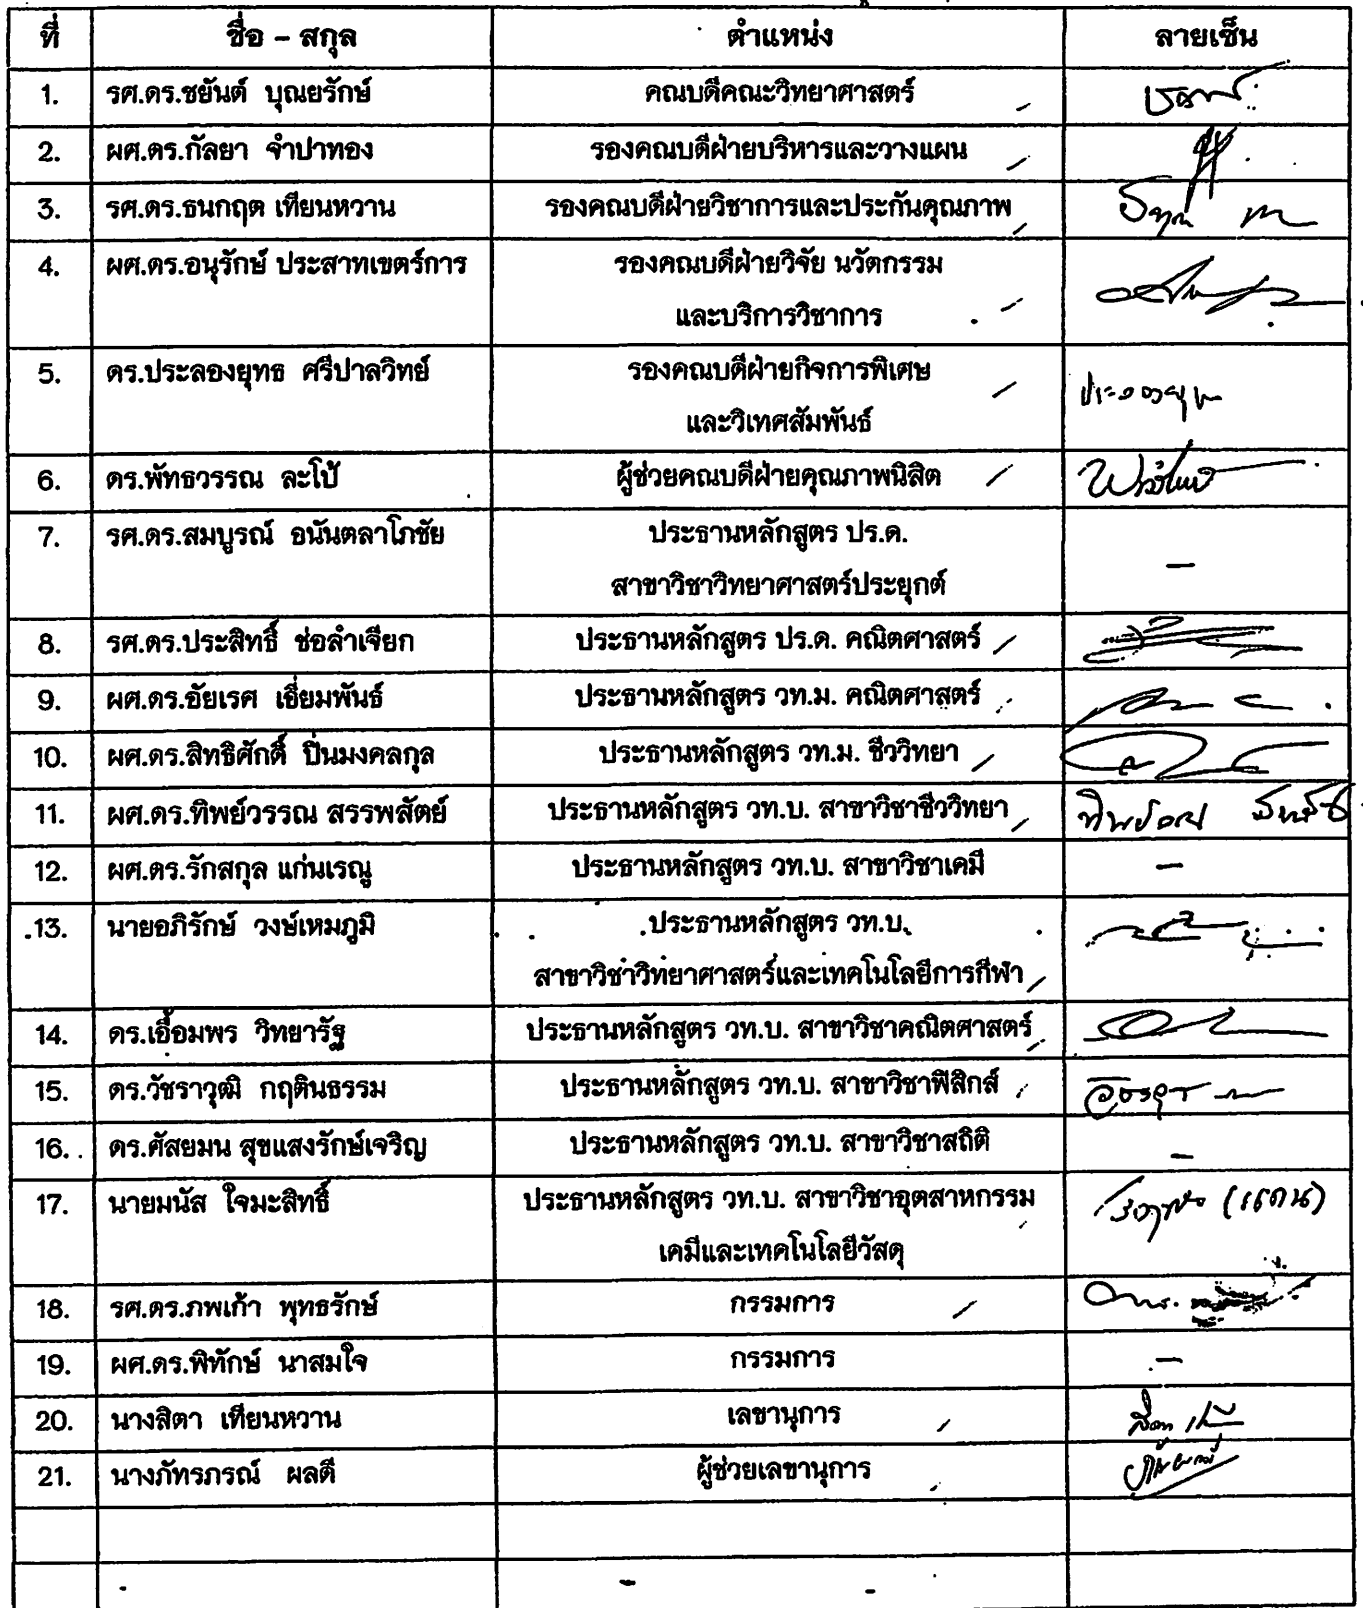 ที่ ชื่อ – สกุล ตำแหน่ง ลายเซ็น
1. รศ.ดร.ชยันต์ บุณยรักษ์ คณบดีคณะวิทยาศาสตร์
2. ผศ.ดร.กัลยา จำปาทอง รองคณบดีฝ่ายบริหารและวางแผน
3. รศ.ดร.ธนกฤต เทียนหวาน รองคณบดีฝ่ายวิชาการและประกันคุณภาพ
4. ผศ.ดร.อนุรักษ์ ประสาทเขตร์การ รองคณบดีฝ่ายวิจัย นวัตกรรม
และบริการวิชาการ
5. ดร.ประลองยุทธ ศรีปาลวิทย์ รองคณบดีฝ่ายกิจการพิเศษ
และวิเทศสัมพันธ์
6. ดร.พัทธวรรณ ละโป้ ผู้ช่วยคณบดีฝ่ายคุณภาพนิสิต
7. รศ.ดร.สมบูรณ์ อนันตลาโภชัย ประธานหลักสูตร ปร.ด.
สาขาวิชาวิทยาศาสตร์ประยุกต์ –
8. รศ.ดร.ประสิทธิ์ ช่อลำเจียก ประธานหลักสูตร ปร.ด. คณิตศาสตร์
9. ผศ.ดร.อัยเรศ เอี่ยมพันธ์ ประธานหลักสูตร วท.ม. คณิตศาสตร์
10. ผศ.ดร.สิทธิศักดิ์ ปิ่นมงคลกุล ประธานหลักสูตร วท.ม. ชีววิทยา
11. ผศ.ดร.ทิพย์วรรณ สรรพสัตย์ ประธานหลักสูตร วท.บ. สาขาวิชาชีววิทยา
12. ผศ.ดร.รักสกุล แก่นเรณู ประธานหลักสูตร วท.บ. สาขาวิชาเคมี –
13. นายอภิรักษ์ วงษ์เหมภูมิ ประธานหลักสูตร วท.บ.
สาขาวิชาวิทยาศาสตร์และเทคโนโลยีการกีฬา
14. ดร.เอื้อมพร วิทยารัฐ ประธานหลักสูตร วท.บ. สาขาวิชาคณิตศาสตร์
15. ดร.วัชราวุฒิ กฤตินธรรม ประธานหลักสูตร วท.บ. สาขาวิชาฟิสิกส์
16. ดร.ศัสยมน สุขแสงรักษ์เจริญ ประธานหลักสูตร วท.บ. สาขาวิชาสถิติ –
17. นายมนัส ใจมะสิทธิ์ ประธานหลักสูตร วท.บ. สาขาวิชาอุตสาหกรรม (แทน)
เคมีและเทคโนโลยีวัสดุ
18. รศ.ดร.ภพเก้า พุทธรักษ์ กรรมการ
19. ผศ.ดร.พิทักษ์ นาสมใจ กรรมการ –
20. นางสิตา เทียนหวาน เลขานุการ
21. นางภัทรภรณ์ ผลดี ผู้ช่วยเลขานุการ